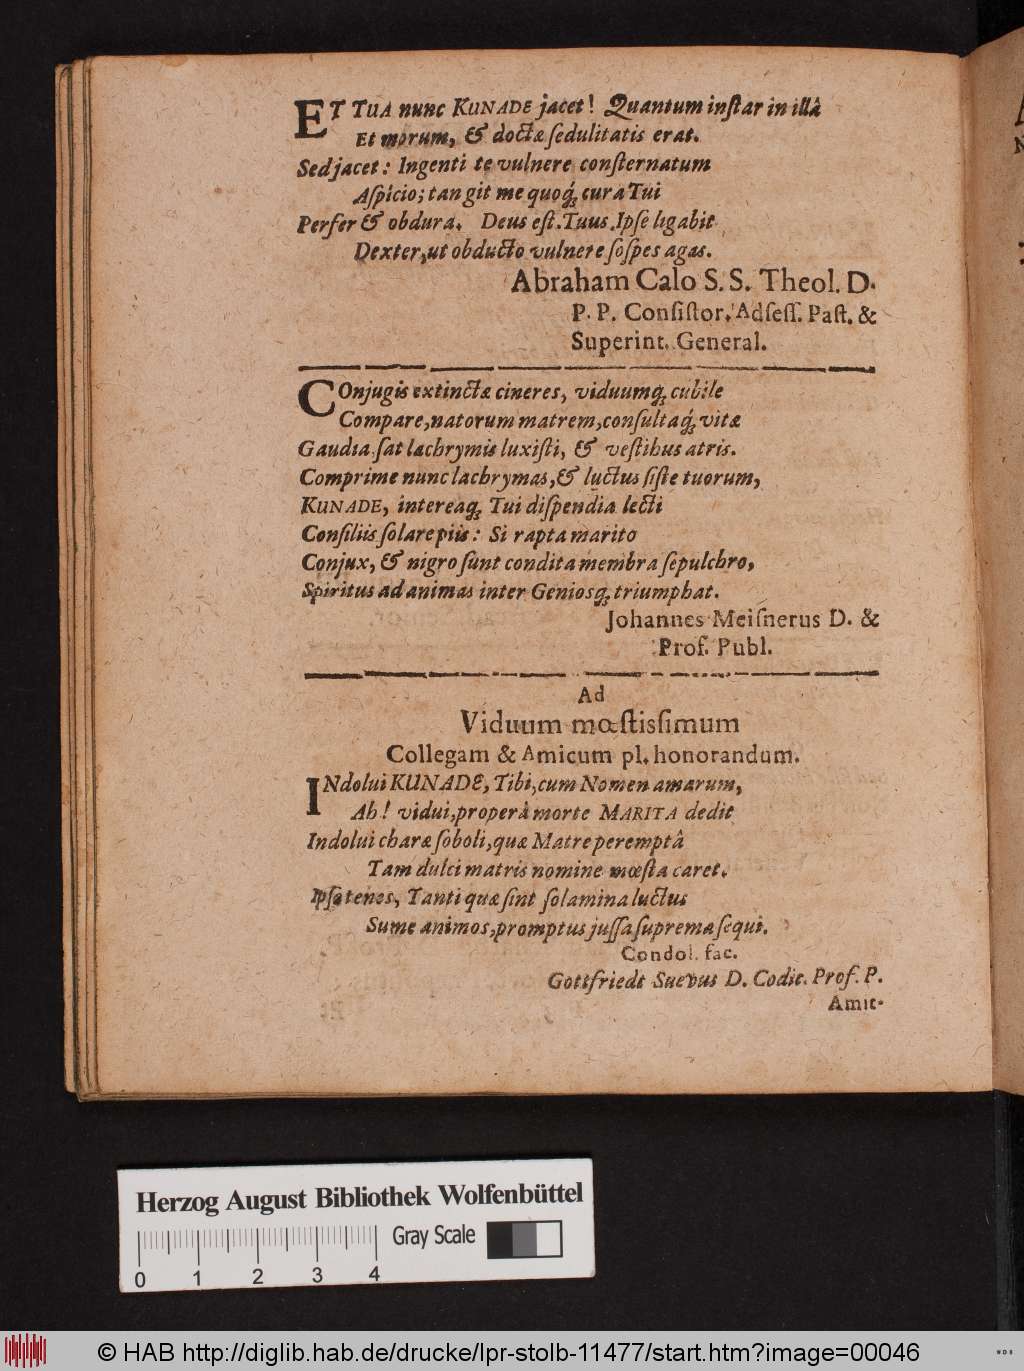 ET TUA nunc KUNADE jacet! Quantum inſtar in illâ
Et morum, & doctæ ſedulitatis erat.
Sed jacet: Ingenti te vulnere conſternatum
Aſpicio; tangit me quoq́; cura Tui
Perfer & obdura. Deus eſt. Tuus. Ipſe ligabit
Dexter, ut obducto vulnere ſoſpes agas.
Abraham Calo S. S. Theol. D.
P. P. Conſiſtor. Adſeſſ. Paſt. &
Superint. General.
COnjugis extinctæ cineres, viduumq́; cubile
Compare, natorum matrem, conſultaq́; vitæ
Gaudia ſat lachrymis luxiſti, & veſtibus atris.
Comprime nunc lachrymas, & luctus ſiſte tuorum,
KUNADE, intereaq́; Tui diſpendia lecti
Conſiliis ſolare piis: Si rapta marito
Conjux, & nigro ſunt condita membra ſepulchro,
Spiritus ad animas inter Geniosq́; triumphat.
Johannes Meiſnerus D. &
Prof. Publ.
Ad
Viduum mœſtisſimum
Collegam & Amicum pl. honorandum.
INdolui KUNADE, Tibi, cum Nomen amarum,
Ah! vidui, properâ morte MARITA dedit
Indolui charæ ſoboli, quæ Matre peremptâ
Tam dulci matris nomine mœſta caret.
Ipſe tenes, Tanti quæ ſint ſolamina luctus
Sume animos, promptus juſſa ſuprema ſequi.
Condol. fac.
Gottfriedt Suevus D. Codic. Prof. P.
Amic-
Herzog August Bibliothek Wolfenbüttel
Gray Scale
0 1 2 3 4
© HAB http://diglib.hab.de/drucke/lpr-stolb-11477/start.htm?image=00046